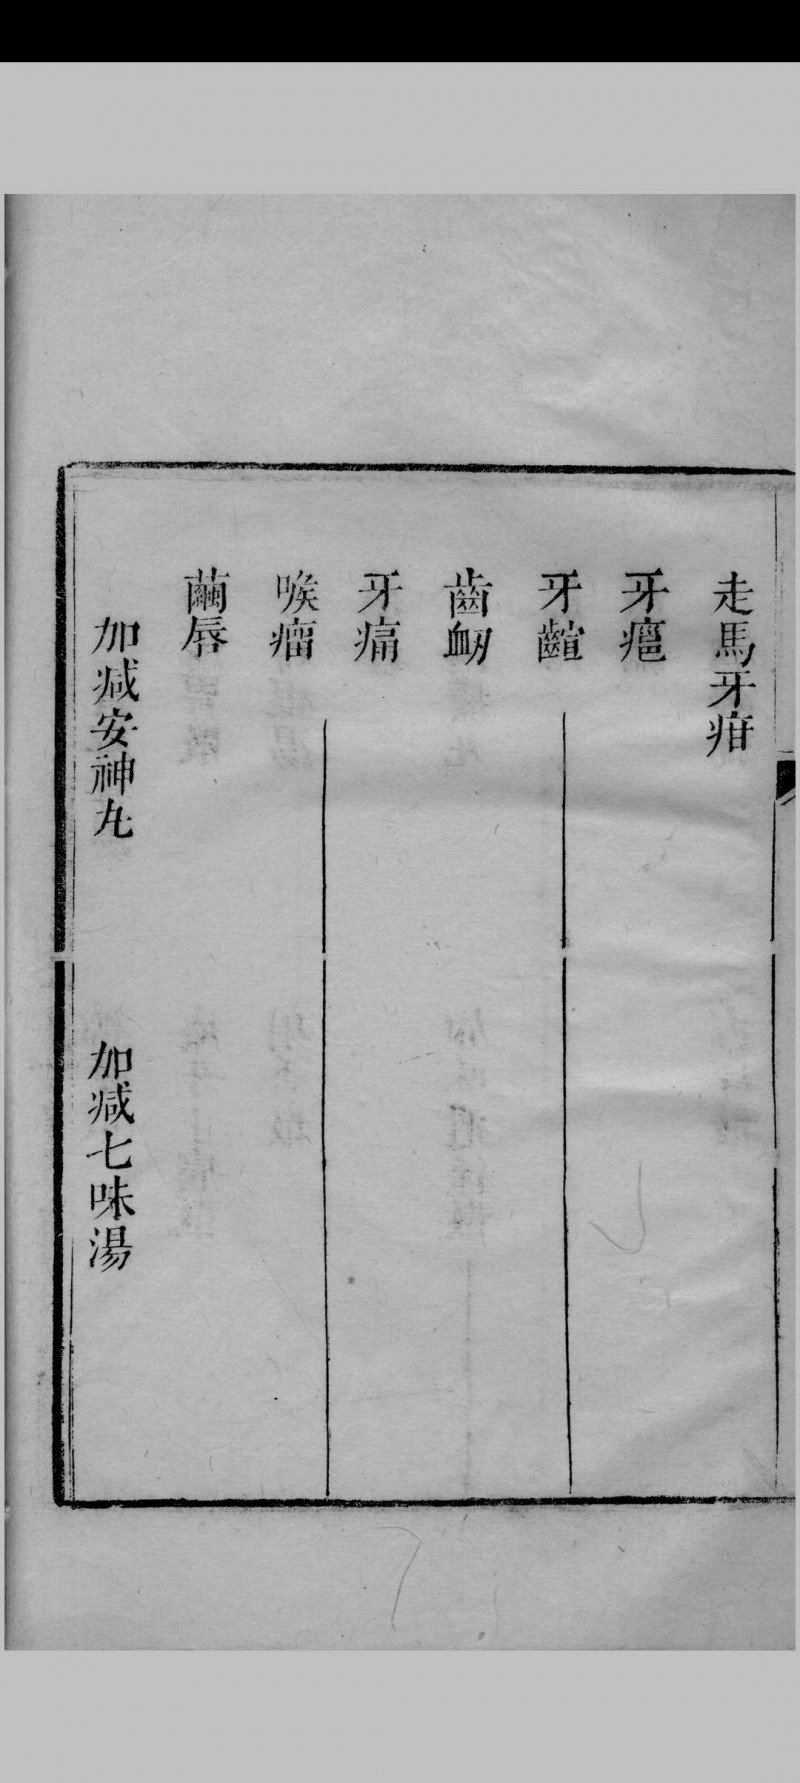 走馬牙疳
牙瘡
牙齇
齒衄
牙癰
喉瘤
繭唇
加減安神丸　加減七味湯